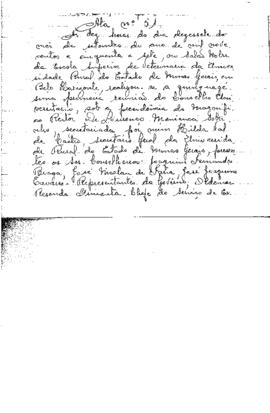 Ata nº 51.
Às dez horas do dia dezessete do
mês de setembro do ano de mil nove
centos e cinquenta e sete, no Salão Nobre
da Escola Superior de Veterinária da Univer
sidade Rural do Estado de Minas Gerais, em
Belo Horizonte, realizou-se a quinquagé
sima primeira reunião do Conselho Uni
versitário, sob a presidência do Magnífi
co Reitor Dr. Lourenço Menicucci Sobri
nho, secretariada por mim Hilda
de Castro, secretária geral da Universida
de Rural do Estado de Minas Gerais, presen
tes os Srs. Conselheiros: Joaquim Fernandes
Braga, José de Faria, José Joaquim
Representantes do Govêrno,
Resende Pimenta, Chefe do Serviço de Ex.